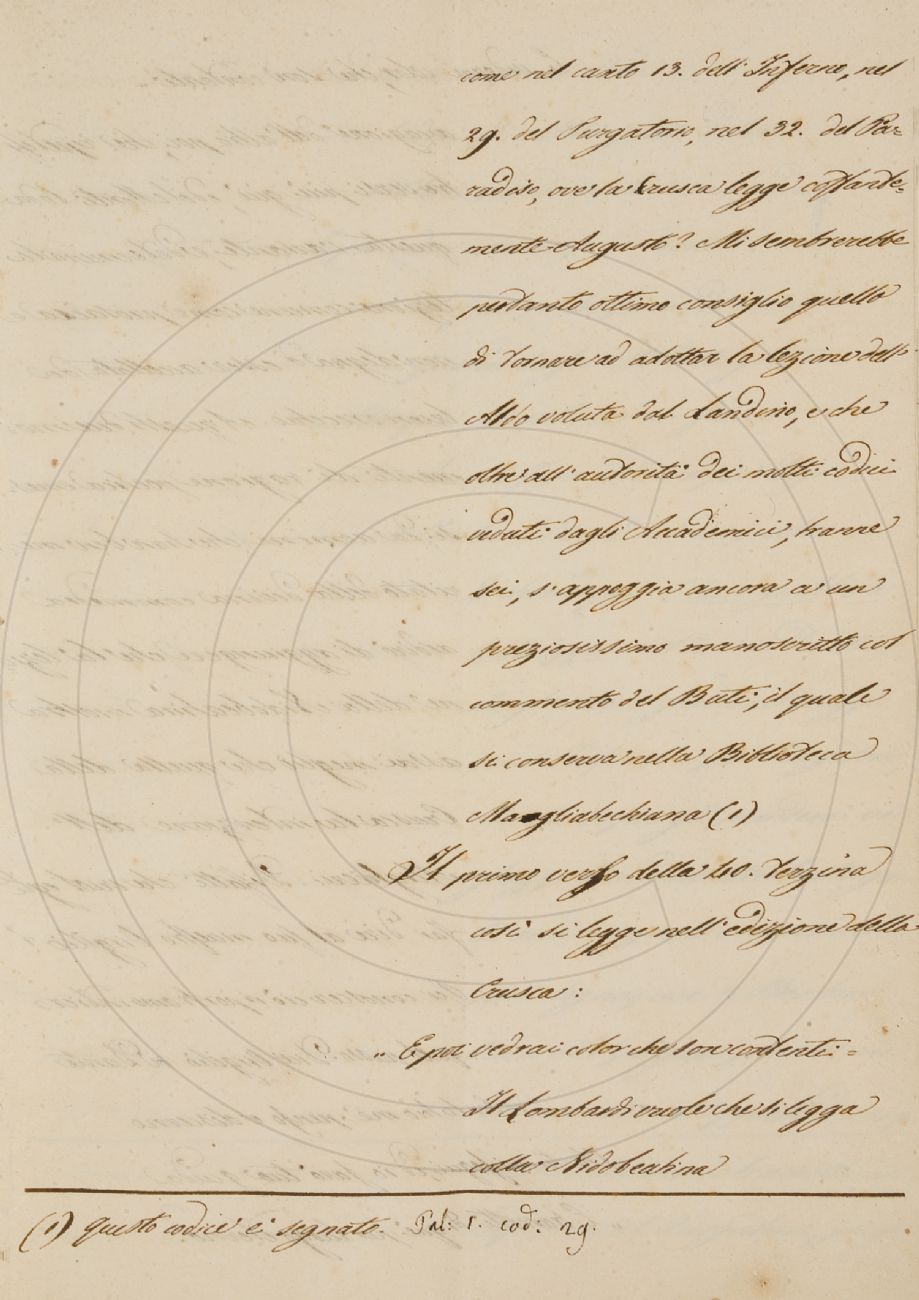 come nel canto 13. dell' Inferno, nel
29. del Purgatorio, nel 32. del Pa=
radiso, ove la Crusca legge costante=
mente Augusto? Mi sembrerebbe
pertanto ottimo consiglio quello
di tornare ad adottar la lezione dell'
Aldo voluta dal Landino, e che
oltre all' autorità dei molti codici
veduti dagli Accademici, tranne
sei, s' appoggia ancora a un
preziosissimo manoscritto col
commento del Buti, il quale
si conserva nella Biblioteca
Magliabechiana (1)
Il primo verso della 40. Terzina
così si legge nell' edizione della
Crusca:
„ E poi vedrai color che son contenti =
Il Lombardi vuole che si legga
colla Nidobeatina
(1) questo codice è segnato. Pal: 1. cod: 29.